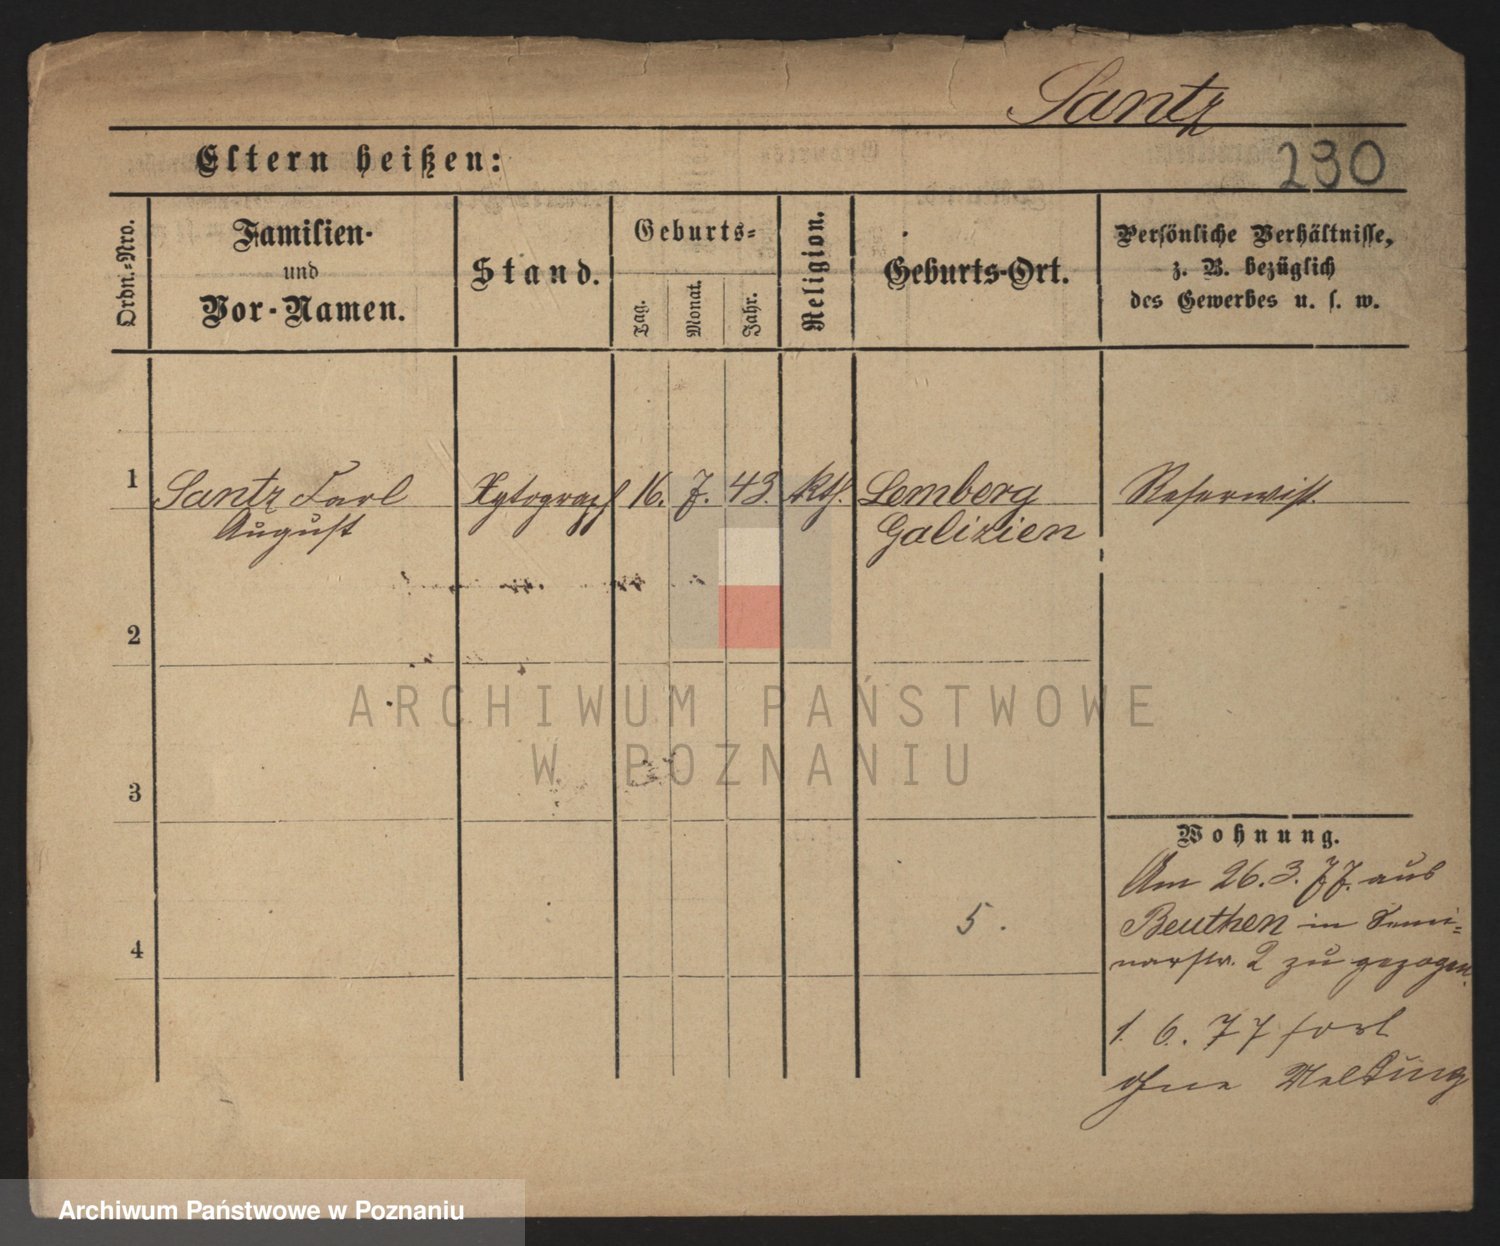 Santz
Eltern heißen:
230
Ordn.-Nro.
Familien-
und
Vor-Namen.
Stand.
Geburts-
Tag.
Monat.
Jahr.
Religion.
Geburts-Ort.
Persönliche Verhältnisse,
z. B. bezüglich
des Gewerbes u. s. w.
1 Santz Karl Xylograph 16. 7. 43. kth. Lemberg Reservist.
August Galizien
2
ARCHIWUM PAŃSTWOWE
W POZNANIU
3
Wohnung.
Am 26. 3. 77. aus
Beuthen in Semi=
5.
4
narstr. 2 zu gezogen.
1. 6. 77 fort
ohne Meldung
Archiwum Państwowe w Poznaniu